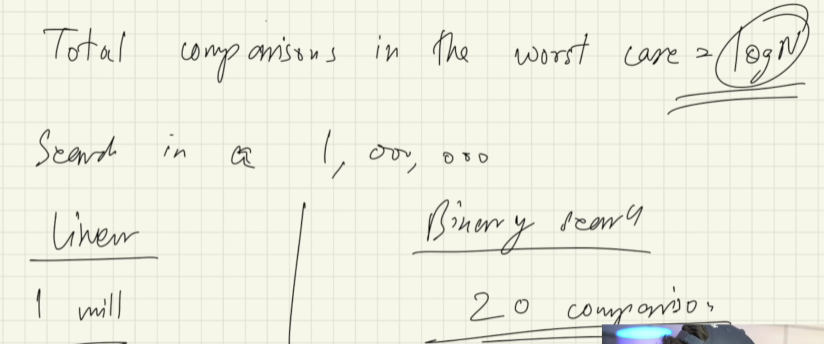 Total comparisons in the worst case = logN
Search in a 1,000,000
Linear
Binary search
1 mill
20 comparisons